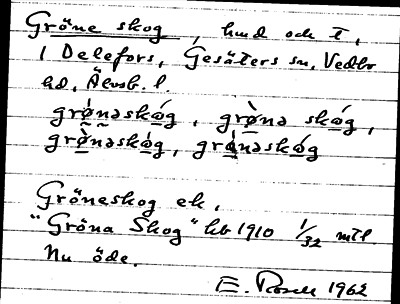 Gröne skog, hmd och t,
i Delefors, Gesäters sn, Vedbo
hd, Älvsb. l.
grø̀nəskó̱g, grø̀nə skó̱g,
grø̀nəskó̱g, grø̀nəskó̱g
Gröneskog ek.
"Gröna Skog" kb 1910 1/32 mtl
Nu öde.
E. 1962